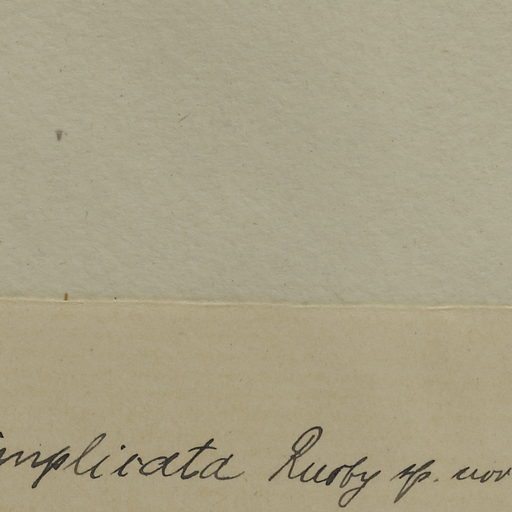 implicata Rusby sp. nov